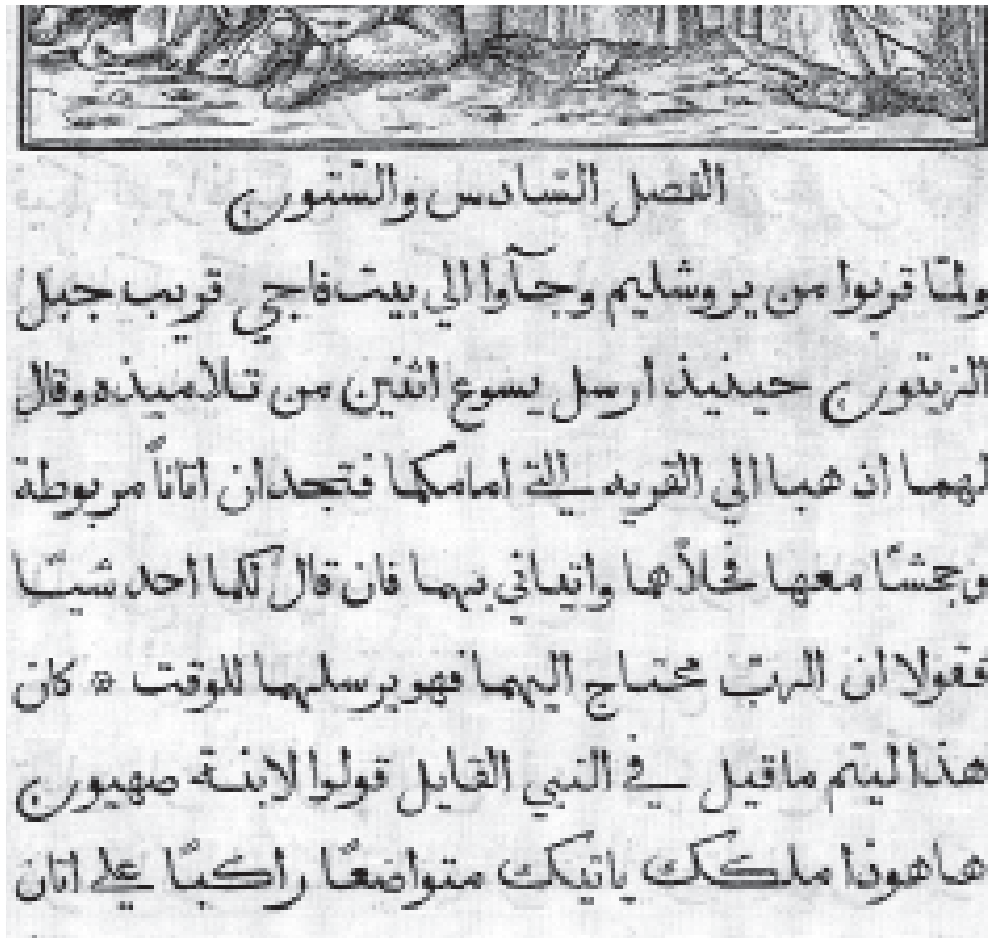 الفصل السّادس والستّون
ولمّا قربوا من يروشليم وجآوا الي بيت فاجي قريب جبل
الزيتون حينيذ ارسل يسوع اثنين من تلاميذه وقال
لهما اذهبا الي القريه التي امامكما فتجدان اتاناً مربوطة
وجحشًا معها فحلّاها واتياني بهما فان قال لكما احد شيئًا
فقولا ان الربّ محتاج اليهما فهو يرسلهما للوقت ۞ كان
هذا ليتم ما قيل في النبي القايل قولوا لابنة صهيون
هاهوذا ملكك ياتيك متواضعًا راكبًا علي اتان